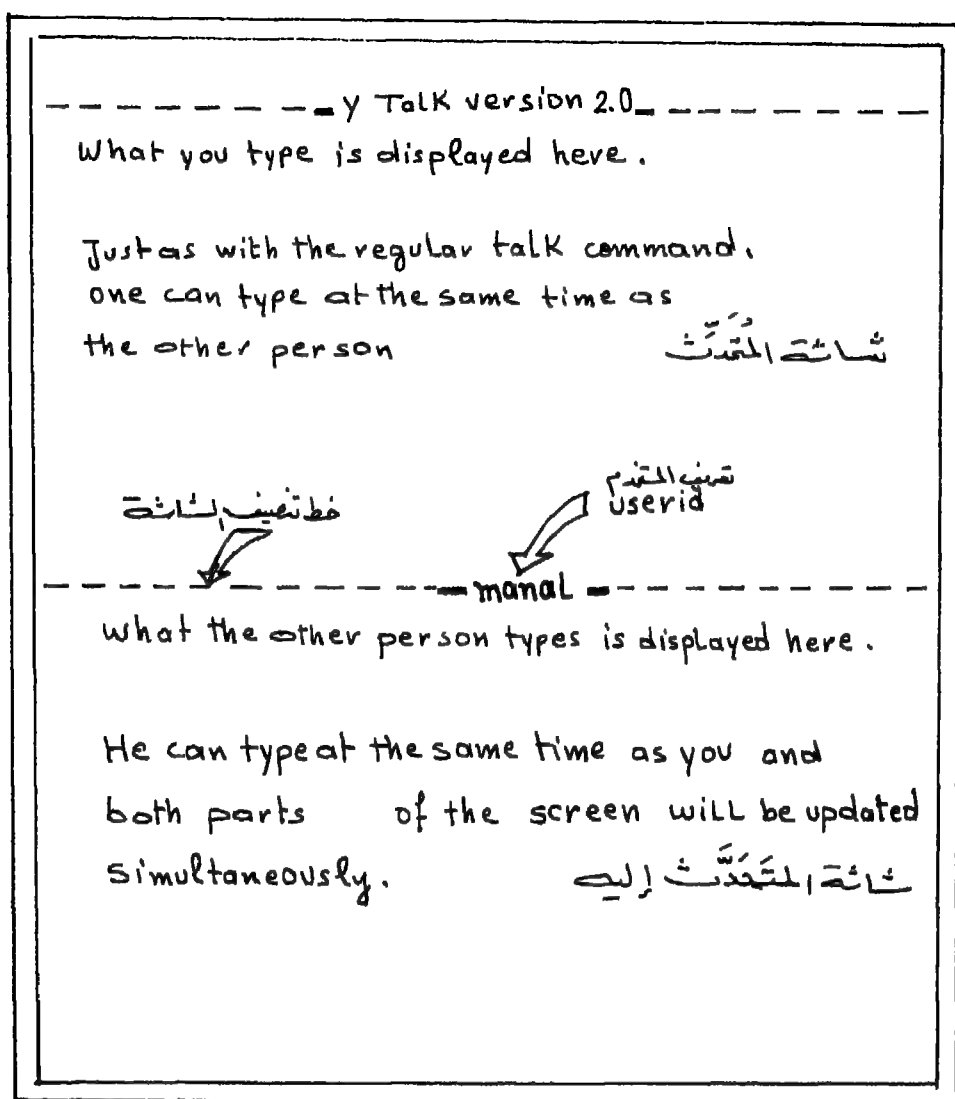 -------- Y Talk version 2.0 --------
What you type is displayed here.
Just as with the regular talk command.
one can type at the same time as
the other person
شاشة المُتَحَدِّث
تعريف المستخدم
userid
خط تنصيف الشاشة
-------- manal --------
what the other person types is displayed here.
He can type at the same time as you and
both parts of the screen will be updated
simultaneously.
شاشة المتَحَدَّث إليه